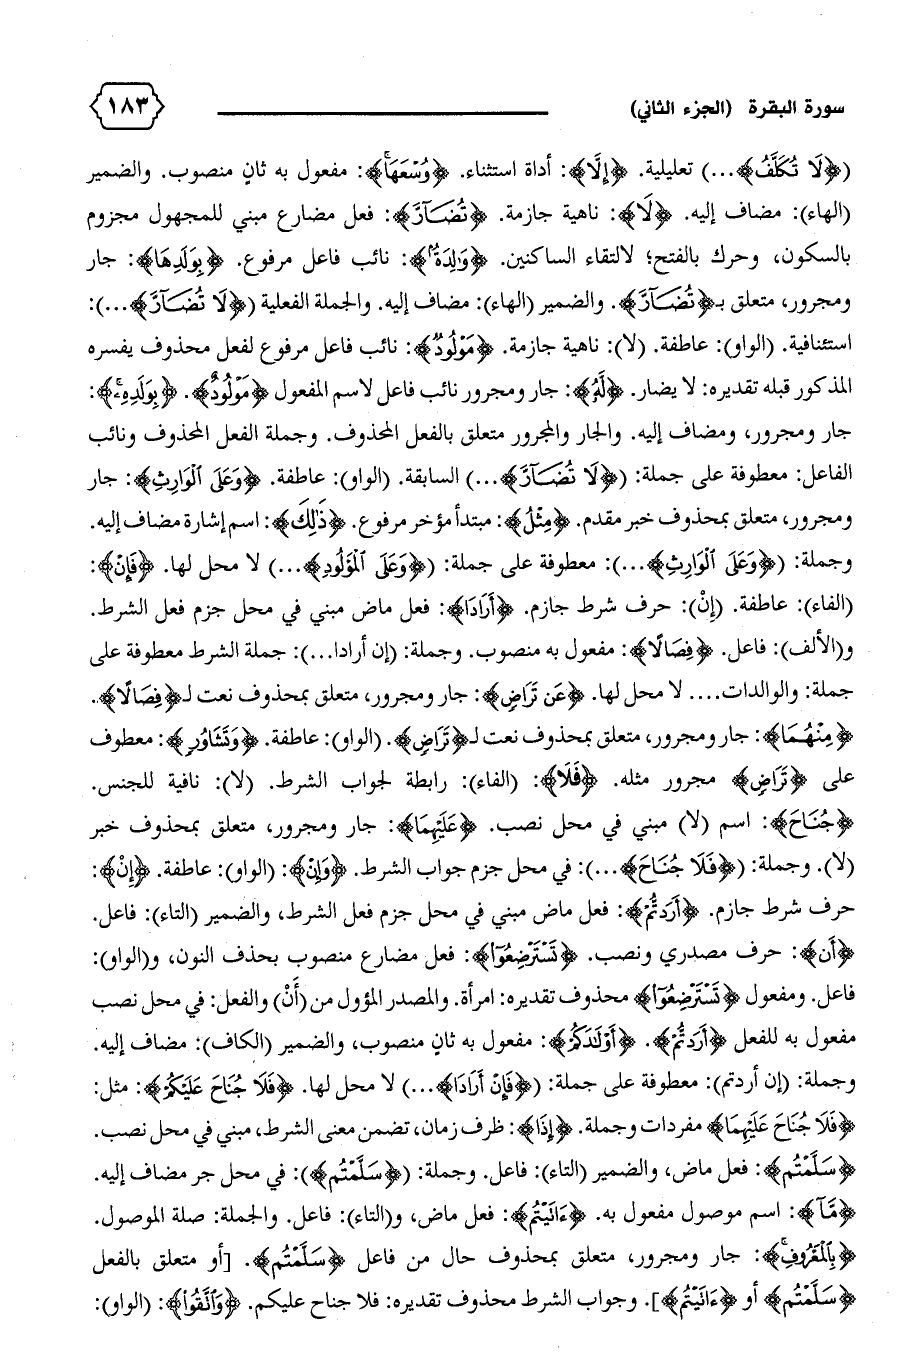 سورة البقرة (الجزء الثاني) ١٨٣
(﴿لَا تُكَلَّفُ﴾...) تعليلية. ﴿إِلَّا﴾: أداة استثناء. ﴿وُسْعَهَا﴾: مفعول به ثانٍ منصوب. والضمير
(الهاء): مضاف إليه. ﴿لَا﴾: ناهية جازمة. ﴿تُضَآرَّ﴾: فعل مضارع مبني للمجهول مجزوم
بالسكون، وحرك بالفتح؛ لالتقاء الساكنين. ﴿وَٰلِدَةٌۢ﴾: نائب فاعل مرفوع. ﴿بِوَلَدِهَا﴾: جار
ومجرور، متعلق بـ﴿تُضَآرَّ﴾. والضمير (الهاء): مضاف إليه. والجملة الفعلية (﴿لَا تُضَآرَّ﴾...):
استئنافية. (الواو): عاطفة. (لا): ناهية جازمة. ﴿مَوْلُودٌ﴾: نائب فاعل مرفوع لفعل محذوف يفسره
المذكور قبله تقديره: لا يضار. ﴿لَّهُۥ﴾: جار ومجرور نائب فاعل لاسم المفعول ﴿مَوْلُودٌ﴾. ﴿بِوَلَدِهِۦ﴾:
جار ومجرور، ومضاف إليه. والجار والمجرور متعلق بالفعل المحذوف. وجملة الفعل المحذوف ونائب
الفاعل: معطوفة على جملة: (﴿لَا تُضَآرَّ﴾...) السابقة. (الواو): عاطفة. ﴿وَعَلَى ٱلْوَارِثِ﴾: جار
ومجرور، متعلق بمحذوف خبر مقدم. ﴿مِثْلُ﴾: مبتدأ مؤخر مرفوع. ﴿ذَٰلِكَ﴾: اسم إشارة مضاف إليه.
وجملة: (﴿وَعَلَى ٱلْوَارِثِ﴾...): معطوفة على جملة: (﴿وَعَلَى ٱلْمَوْلُودِ﴾...) لا محل لها. ﴿فَإِنْ﴾:
(الفاء): عاطفة. (إِنْ): حرف شرط جازم. ﴿أَرَادَا﴾: فعل ماض مبني في محل جزم فعل الشرط.
و(الألف): فاعل. ﴿فِصَالًا﴾: مفعول به منصوب. وجملة: (إن أرادا...): جملة الشرط معطوفة على
جملة: والوالدات.... لا محل لها. ﴿عَن تَرَاضٍ﴾: جار ومجرور، متعلق بمحذوف نعت لـ﴿فِصَالًا﴾.
﴿مِنْهُمَا﴾: جار ومجرور، متعلق بمحذوف نعت لـ﴿تَرَاضٍ﴾. (الواو): عاطفة. ﴿وَتَشَاوُرٍ﴾: معطوف
على ﴿تَرَاضٍ﴾ مجرور مثله. ﴿فَلَا﴾: (الفاء): رابطة لجواب الشرط. (لا): نافية للجنس.
﴿جُنَاحَ﴾: اسم (لا) مبني في محل نصب. ﴿عَلَيْهِمَا﴾: جار ومجرور، متعلق بمحذوف خبر
(لا). وجملة: (﴿فَلَا جُنَاحَ﴾...): في محل جزم جواب الشرط. ﴿وَإِنْ﴾: (الواو): عاطفة. ﴿إِنْ﴾:
حرف شرط جازم. ﴿أَرَدتُّمْ﴾: فعل ماض مبني في محل جزم فعل الشرط، والضمير (التاء): فاعل.
﴿أَن﴾: حرف مصدري ونصب. ﴿تَسْتَرْضِعُوٓا﴾: فعل مضارع منصوب بحذف النون، و(الواو):
فاعل. ومفعول ﴿تَسْتَرْضِعُوٓا﴾ محذوف تقديره: امرأة. والمصدر المؤول من (أَنْ) والفعل: في محل نصب
مفعول به للفعل ﴿أَرَدتُّمْ﴾. ﴿أَوْلَٰدَكُمْ﴾: مفعول به ثانٍ منصوب، والضمير (الكاف): مضاف إليه.
وجملة: (إن أردتم): معطوفة على جملة: (﴿فَإِنْ أَرَادَا﴾...) لا محل لها. ﴿فَلَا جُنَاحَ عَلَيْكُمْ﴾: مثل:
﴿فَلَا جُنَاحَ عَلَيْهِمَا﴾ مفردات وجملة. ﴿إِذَا﴾: ظرف زمان، تضمن معنى الشرط، مبني في محل نصب.
﴿سَلَّمْتُم﴾: فعل ماض، والضمير (التاء): فاعل. وجملة: (﴿سَلَّمْتُم﴾): في محل جر مضاف إليه.
﴿مَّآ﴾: اسم موصول مفعول به. ﴿ءَاتَيْتُم﴾: فعل ماض، و(التاء): فاعل. والجملة: صلة الموصول.
﴿بِٱلْمَعْرُوفِ﴾: جار ومجرور، متعلق بمحذوف حال من فاعل ﴿سَلَّمْتُم﴾. [أو متعلق بالفعل
﴿سَلَّمْتُم﴾ أو ﴿ءَاتَيْتُم﴾]. وجواب الشرط محذوف تقديره: فلا جناح عليكم. ﴿وَٱتَّقُوا۟﴾: (الواو):